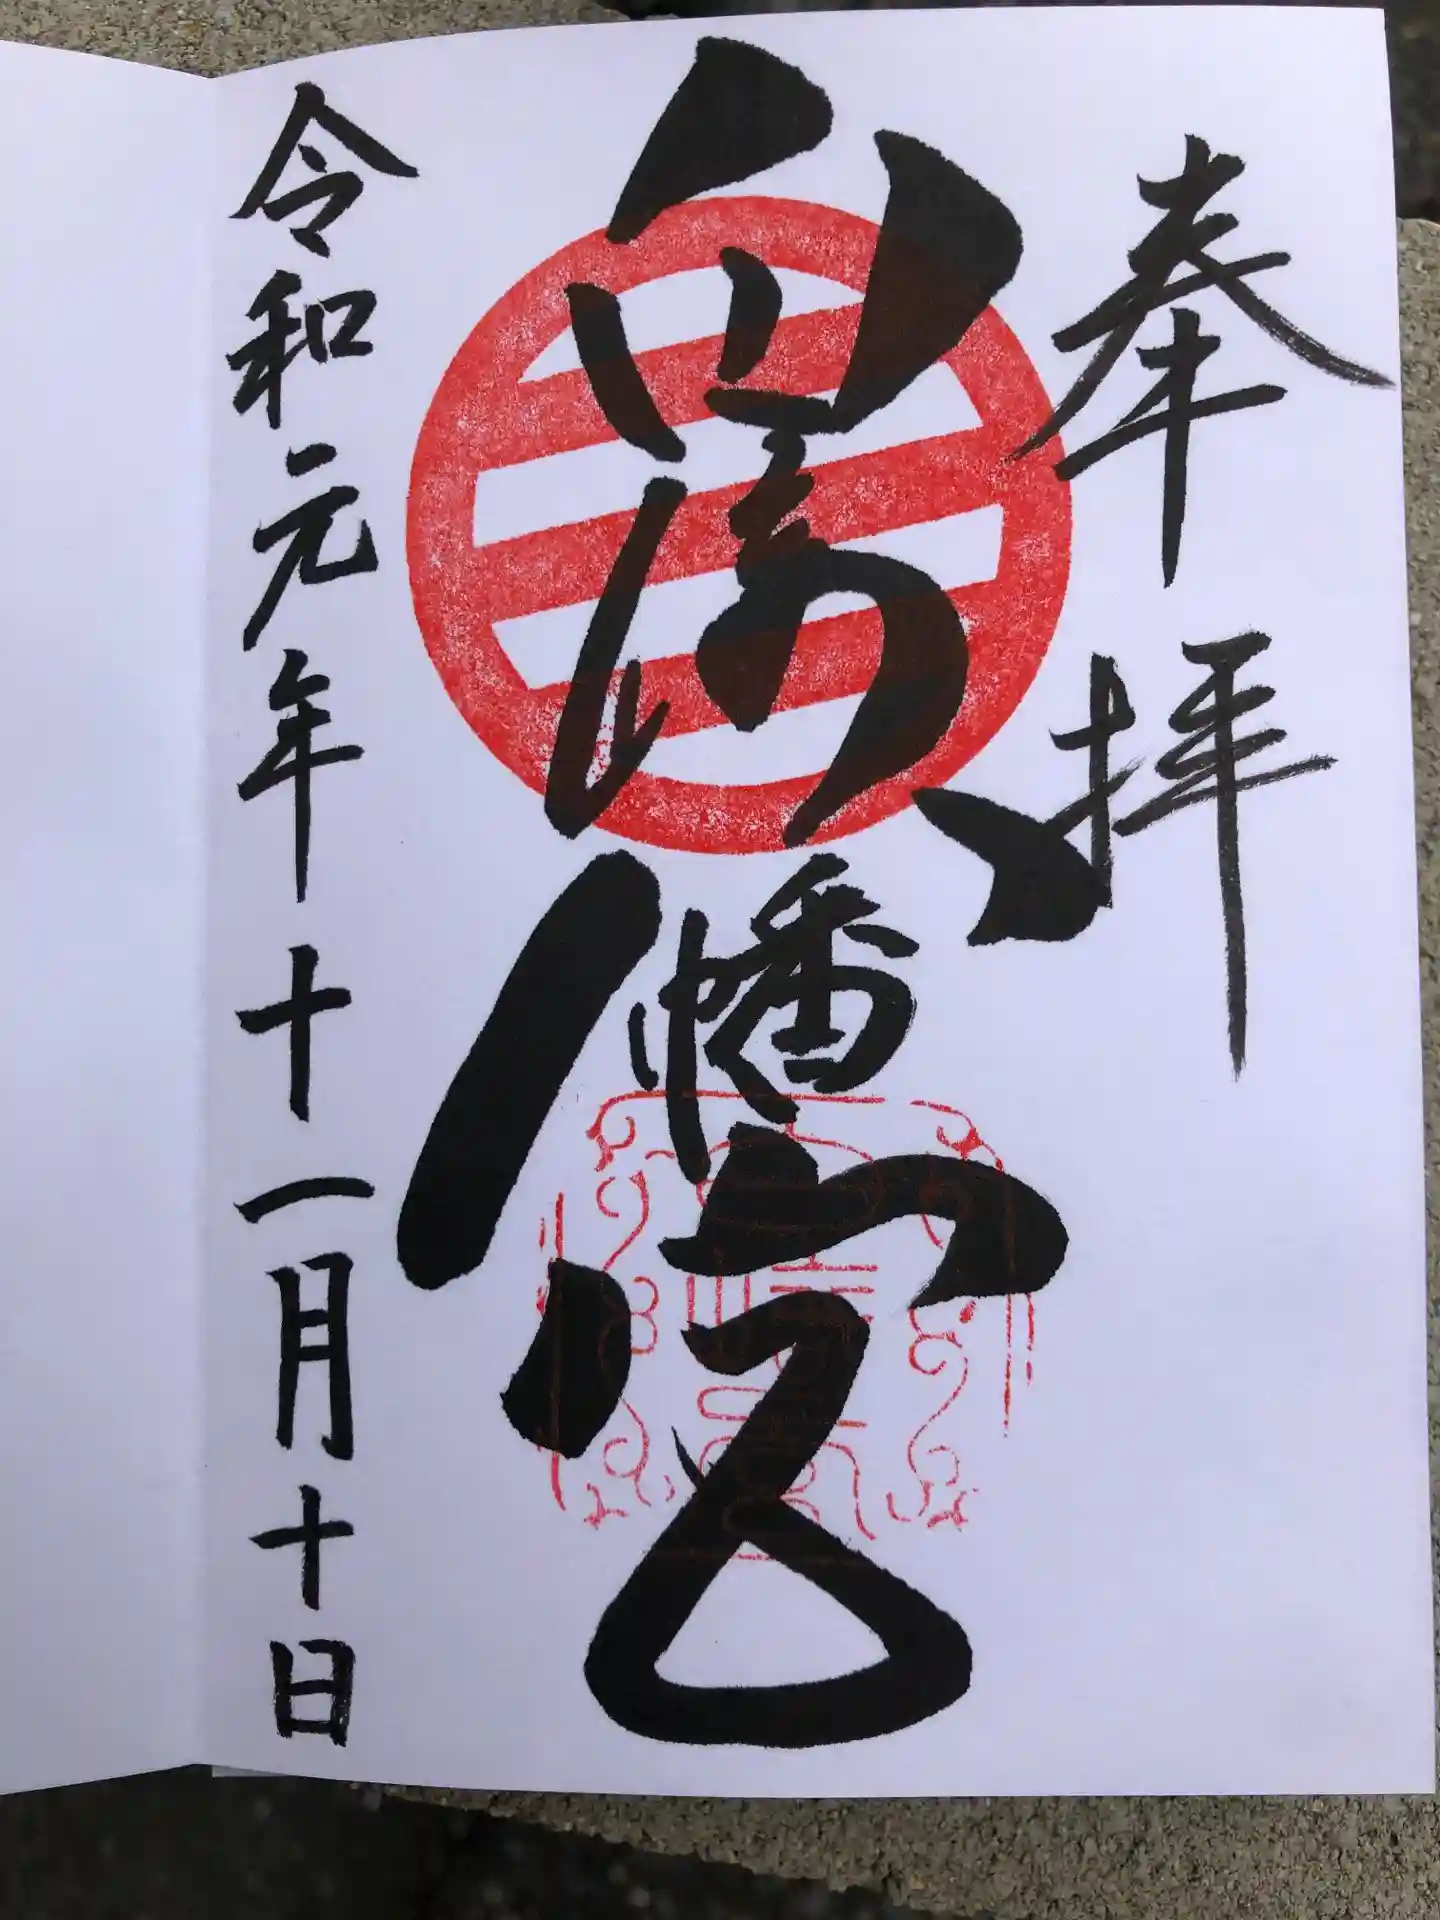 奉拝
八幡宮
令和元年十一月十日